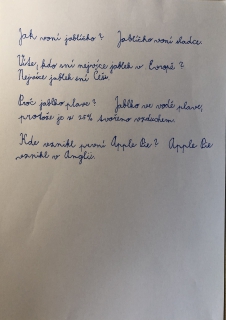 Jak voní jablíčko? Jablíčko voní sladce.
Víte, kdo sní nejvíce jablek v Evropě?
Nejvíce jablek sní Češi.
Proč jablko plave? Jablko ve vodě plave,
protože je z 25% tvořeno vzduchem.
Kde vznikl první Apple Pie? Apple Pie
vznikl v Anglii.